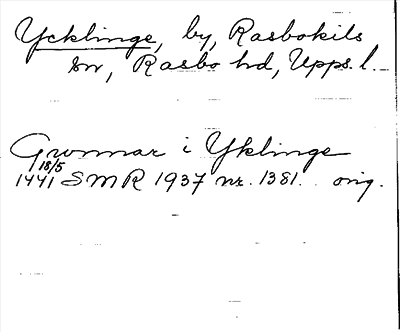 Ycklinge, by, Rasbokils
sn, Rasbo hd, Upps. l.
Gunnar i Yklinge
18/5
1441 SMR 1937 nr. 1381. orig.